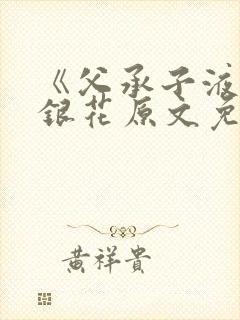 《父承子液
銀花原文免
黄祥貴